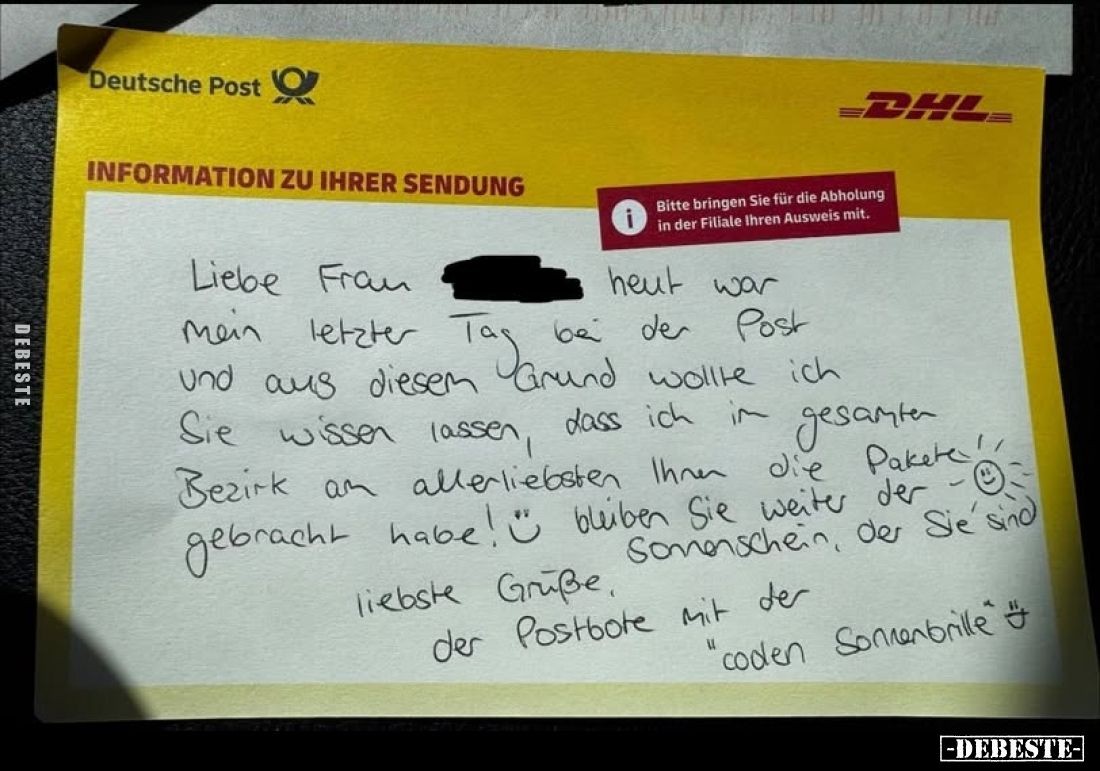 Deutsche Post
DHL
INFORMATION ZU IHRER SENDUNG
Bitte bringen Sie für die Abholung
in der Filiale Ihren Ausweis mit.
Liebe Frau heut war
mein letzter Tag bei der Post
und aus diesem Grund wollte ich
Sie wissen lassen, dass ich im gesamten
Bezirk am allerliebsten Ihnen die Pakete
gebracht habe! bleiben Sie weiter der
Sonnenschein, der Sie sind
liebste Grüße,
der Postbote mit der
"coolen Sonnenbrille"
DEBESTE
-DEBESTE-